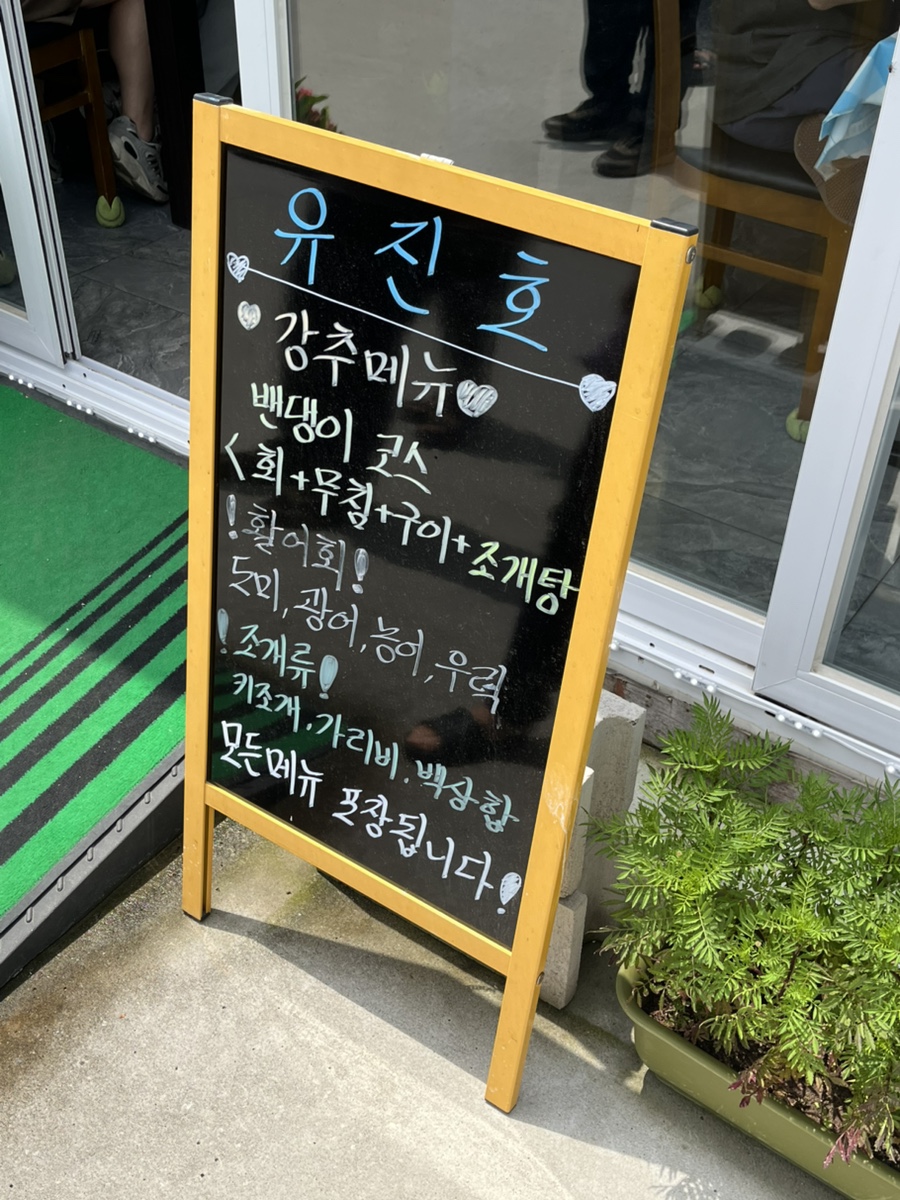 유진호
강추메뉴
밴댕이 코스
<회+무침+구이+조개탕
!활어회!
도미, 광어, 농어, 우럭
!조개류!
키조개, 가리비, 백상합
모든메뉴 포장됩니다!